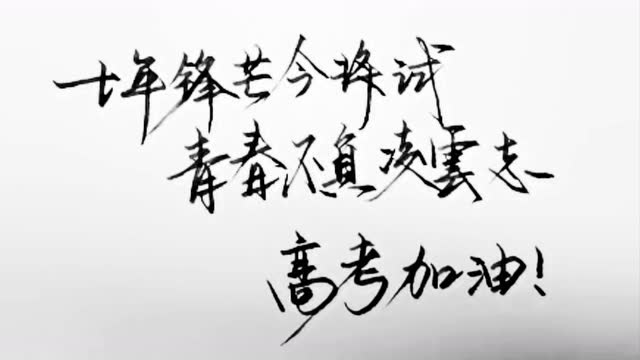 十年锋芒今将试
青春不負凌雲志
高考加油！